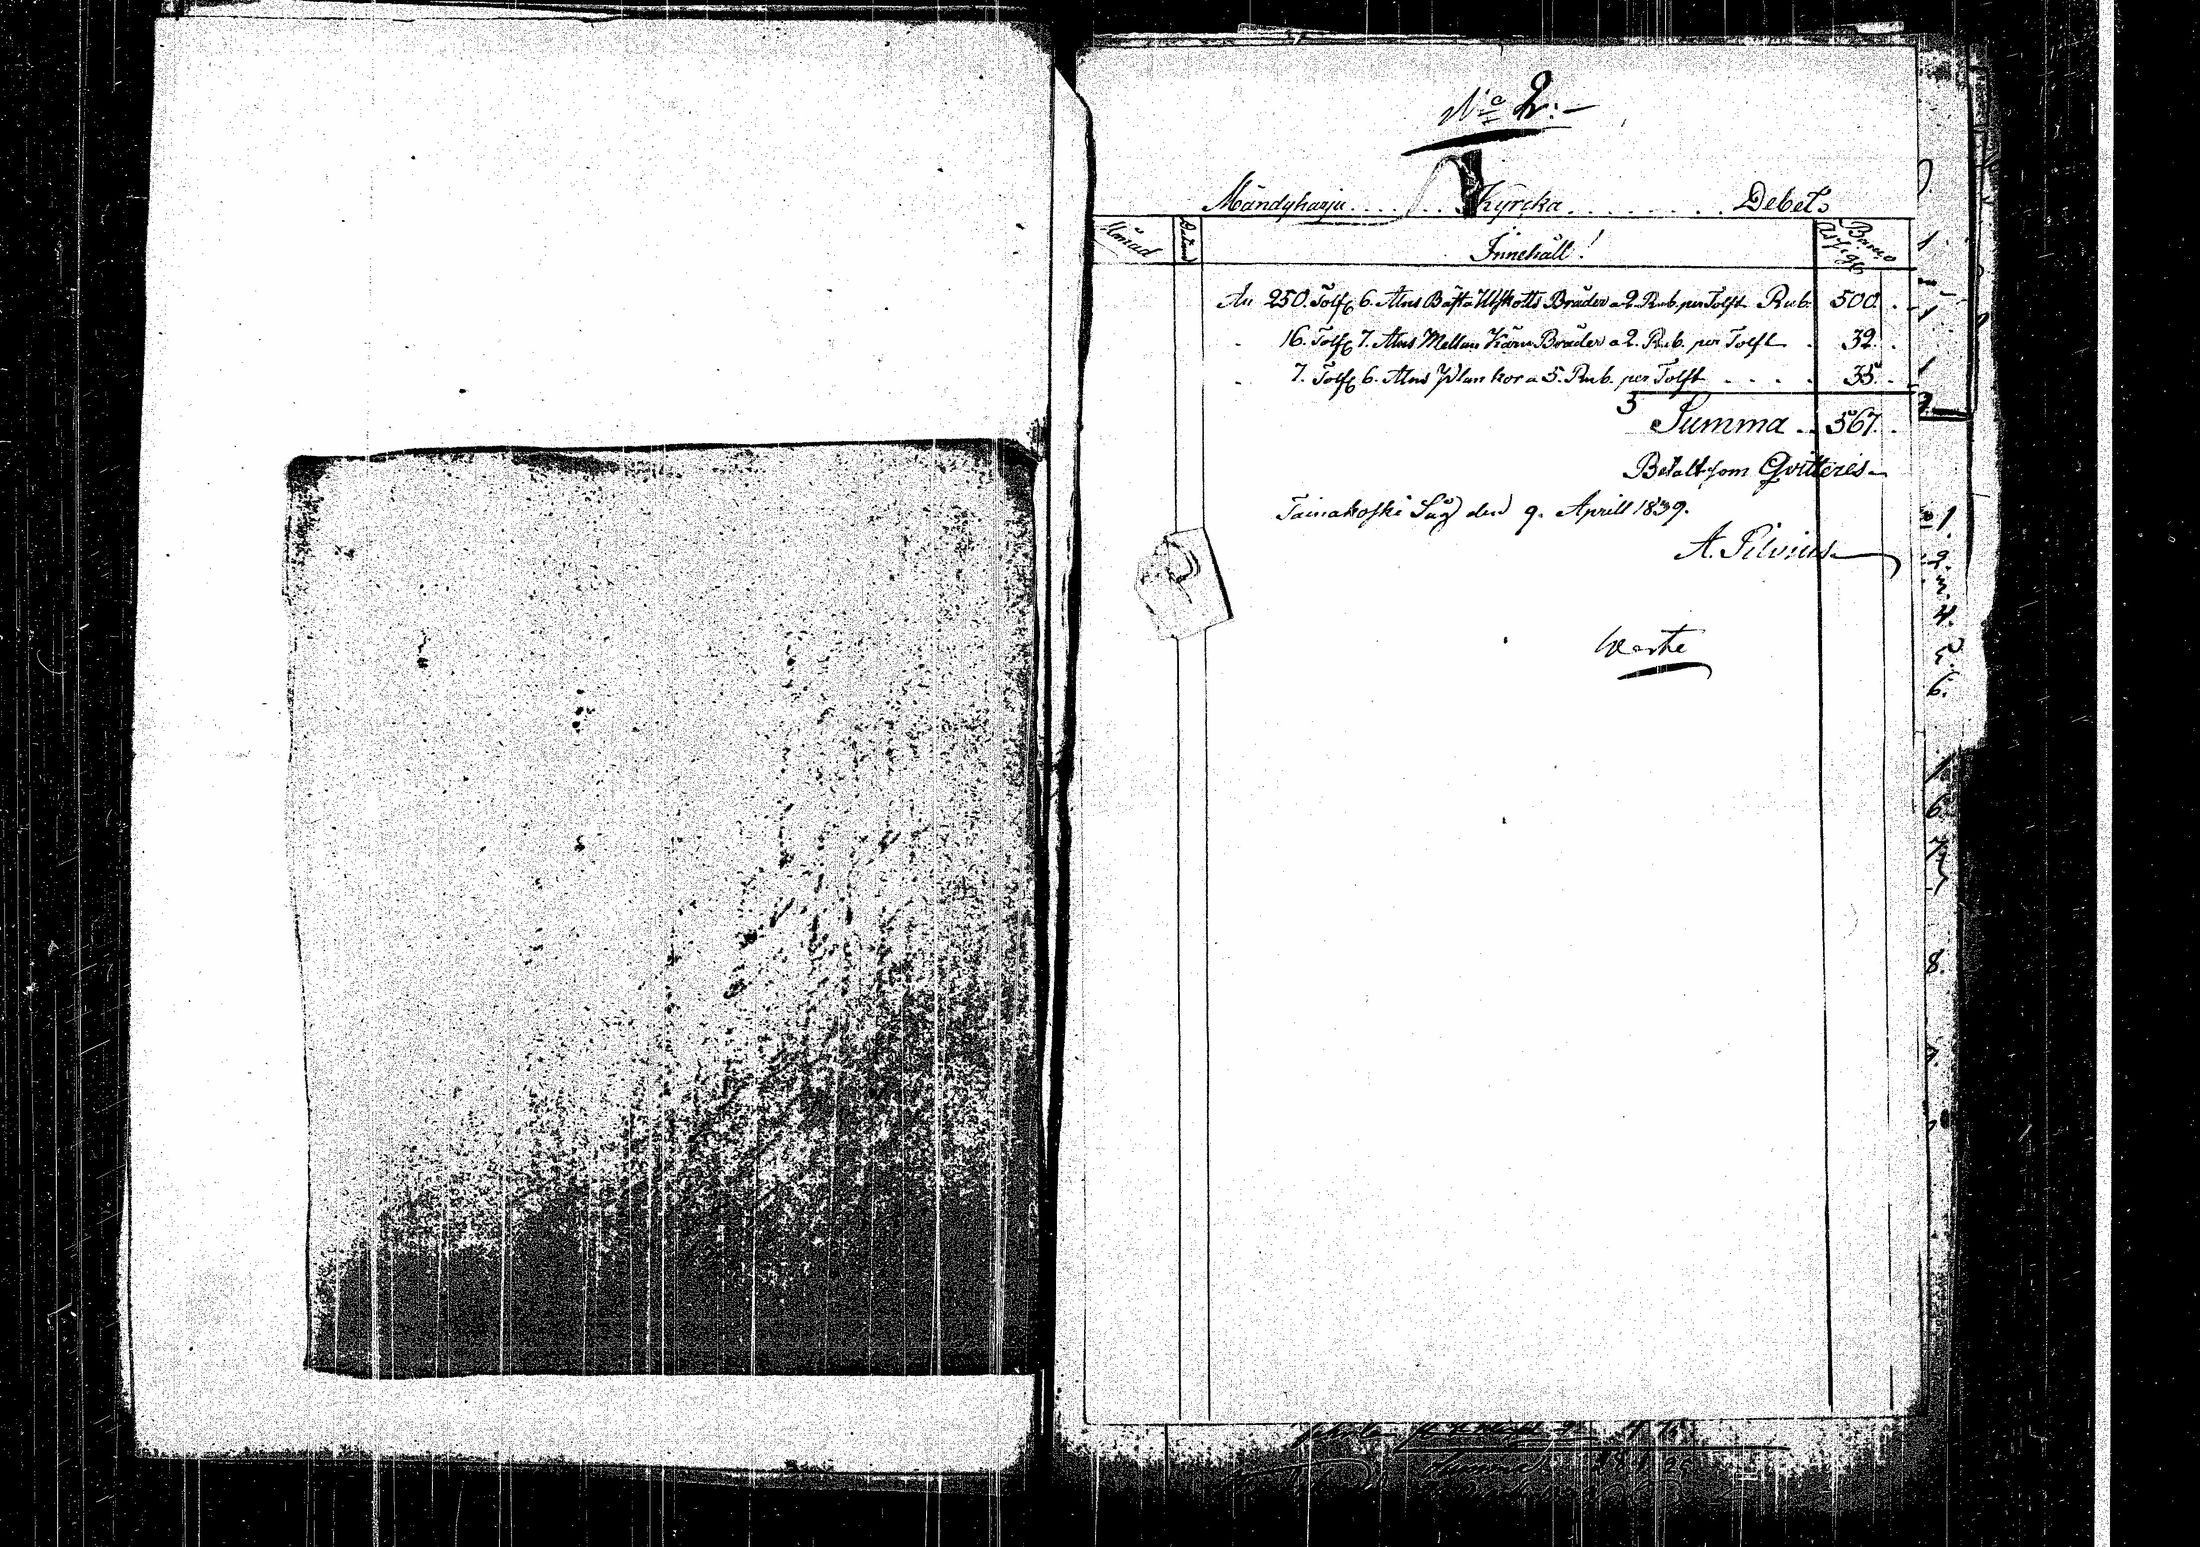 No 2:-
Mändyharju . . . . . Kyrcka . . . . . . . . Debet:
Månad Datum Innehåll! Banco Ass:g:
An 250. Tolft 6. Alns Bästa Utskotts Bräder a 2. Rub. per Tolft Rub. 500. .
16. Tolft 7. Alns Mellan Bräder a 2. Rub. per Tolft . 32. .
7. Tolft 6. Alns Plankor a 5. Rub. per Tolft . . . . 35. .
Summa . . 567. .
Betalt som Qvitteres
Tainakoski Såg den 9. Aprill 1839.
A. Silvius
1.
2.
3.
4.
5.
6.
8.